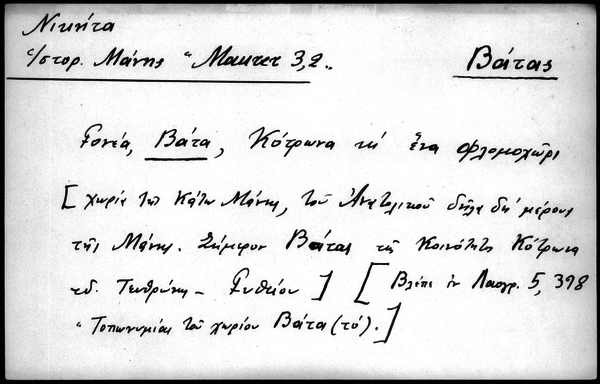 Νικήτα
Ἱστορ. Μάνης " Μαυτετ 3,2..
Βάτας
Γονέα, Βάτα, Κότρωνα κὶ ἕνα Φλομοχῶρι
[ χωρία τῆς Κάτω Μάνης, τοῦ Ἀνατολικοῦ δηλαδὴ μέρους
τῆς Μάνης. Σήμερον Βάτας τῆς Κοινότητος Κότρωνα
τ. δ. Τευθρώνης - Γυθείου ] [ Βλέπε ἐν Λαογρ. 5, 398
"Τοπωνυμίας τοῦ χωρίου Βάτα (τό).]